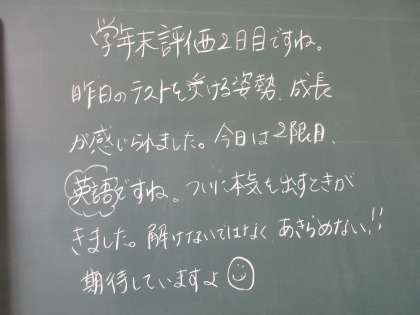 学年末評価2日目ですね。
昨日のテストを受ける姿勢、成長
が感じられました。今日は2限目、
英語ですね。ついに本気を出すときが
きました。解けないではなく あきらめない!!
期待していますよ